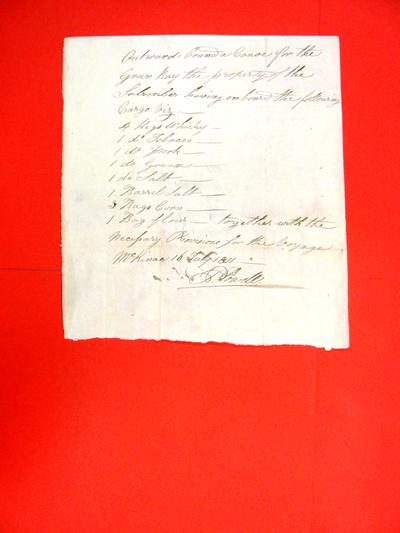 Outward bound a Canoe for the
Green Bay the property of the
Subscriber having on board the following
Cargo Viz
4 Kegs Whisky
1 do Tobacco
1 do Pork
1 do Grease
1 do Salt
1 Barrel Salt
3 Bags Corn
1 Bag flour together with the
Necessary Provisions for the Voyage
McKinac 16 July 1811
Powell